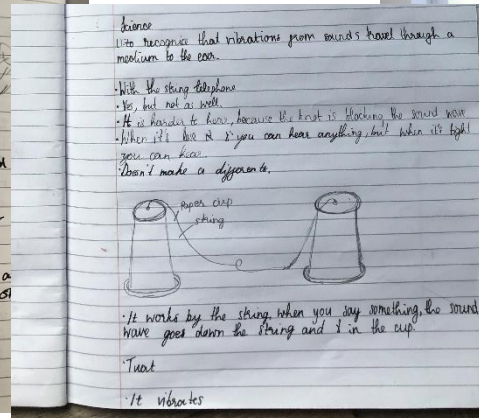 Science
to recognise that vibrations from sounds travel through a
medium to the ear.
• With the string telephone
• Yes, but not as well.
• It is harder to hear, because the knot is blocking the sound wave
• When it's you can hear anything, but when it's tight
you can hear.
• Doesn't make a difference.
Paper cup
string
• It works by the string, when you say something, the sound
wave goes down the string and in the cup.
•
• It vibrates